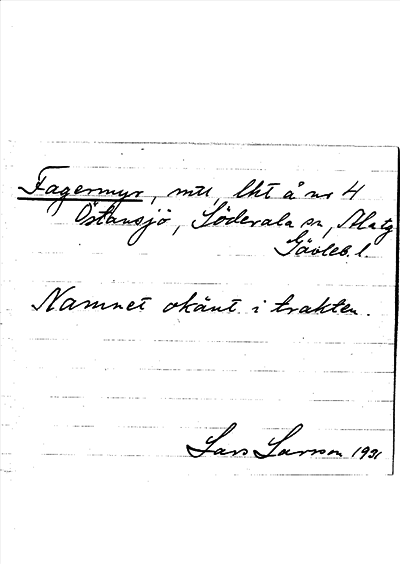 Fagermyr, mtl, lht å nr 4
Östansjö, Söderala sn, Ala tg
Gävleb. l.
Namnet okänt i trakten.
Lars Larsson 1931